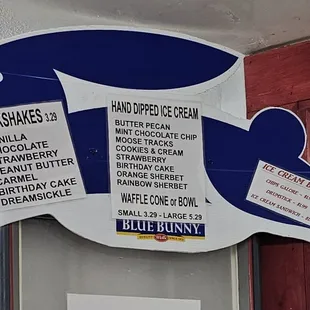 KSHAKES 3.29
NILLA
HOCOLATE
STRAWBERRY
PEANUT BUTTER
CARMEL
BIRTHDAY CAKE
DREAMSICKLE
HAND DIPPED ICE CREAM
BUTTER PECAN
MINT CHOCOLATE CHIP
MOOSE TRACKS
COOKIES & CREAM
STRAWBERRY
BIRTHDAY CAKE
ORANGE SHERBET
RAINBOW SHERBET
WAFFLE CONE or BOWL
SMALL 3.29 - LARGE 5.29
BLUE BUNNY
ICE CREAM
CHIPS GALORE
DRUMSTICK
ICE CREAM SANDWICH